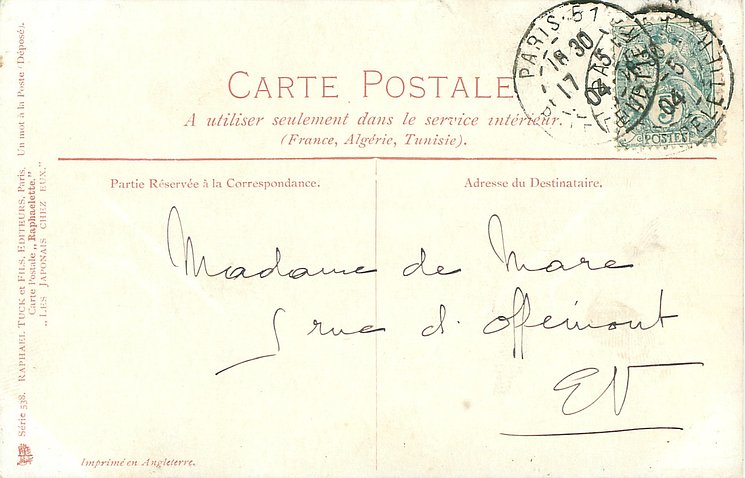 CARTE POSTALE
A utiliser seulement dans le service intérieur.
(France, Algérie, Tunisie).
Partie Réservée à la Correspondance.
Adresse du Destinataire.
Madame de Mare
5 rue d'Offémont
EV
Imprimé en Angleterre.
Série 538. RAPHAEL TUCK et FILS, EDITEURS, Paris. Un mot à la Poste (Déposé).
Carte Postale „Raphaelette."
„LES JAPONAIS CHEZ EUX."
PARIS 51
18 30
17
04
5
POSTES